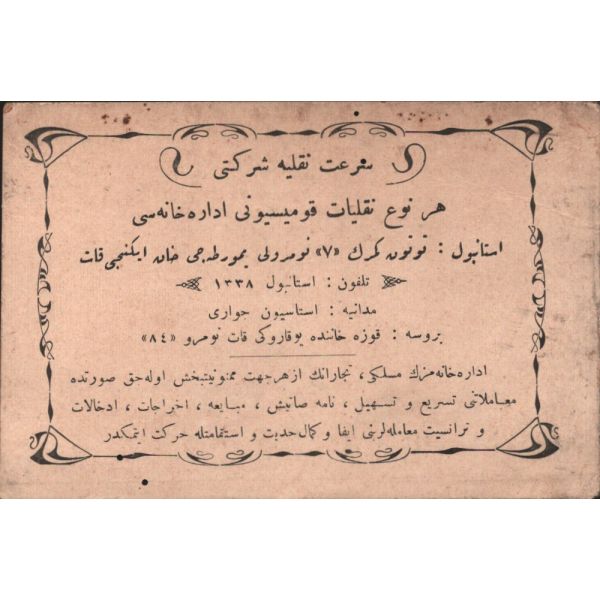 سرعت نقلیه شرکتی
هر نوع نقلیات قومیسیونی اداره‌خانه‌سی
استانبول : توتون کمرك «۷» نومرولی یمورطه‌جی خان ایکنجی قات
تلفون : استانبول ۱۳۳۸
مدانیه : استاسیون جواری
بروسه : قوزه خاننده یوقاروکی قات نومرو «۸٤»
اداره‌خانه‌مزك مسلکی، تجارانك از هر جهت ممنونیتبخش اوله‌جق صورتده
معاملاتنی تسریع و تسهیل ، نامه صاتیش ، مبایعه ، اخراجات ، ادخالات
و ترانسیت معامله‌لرینی ایفا و کمال جدیت و استقامتله حرکت ایتمکدر